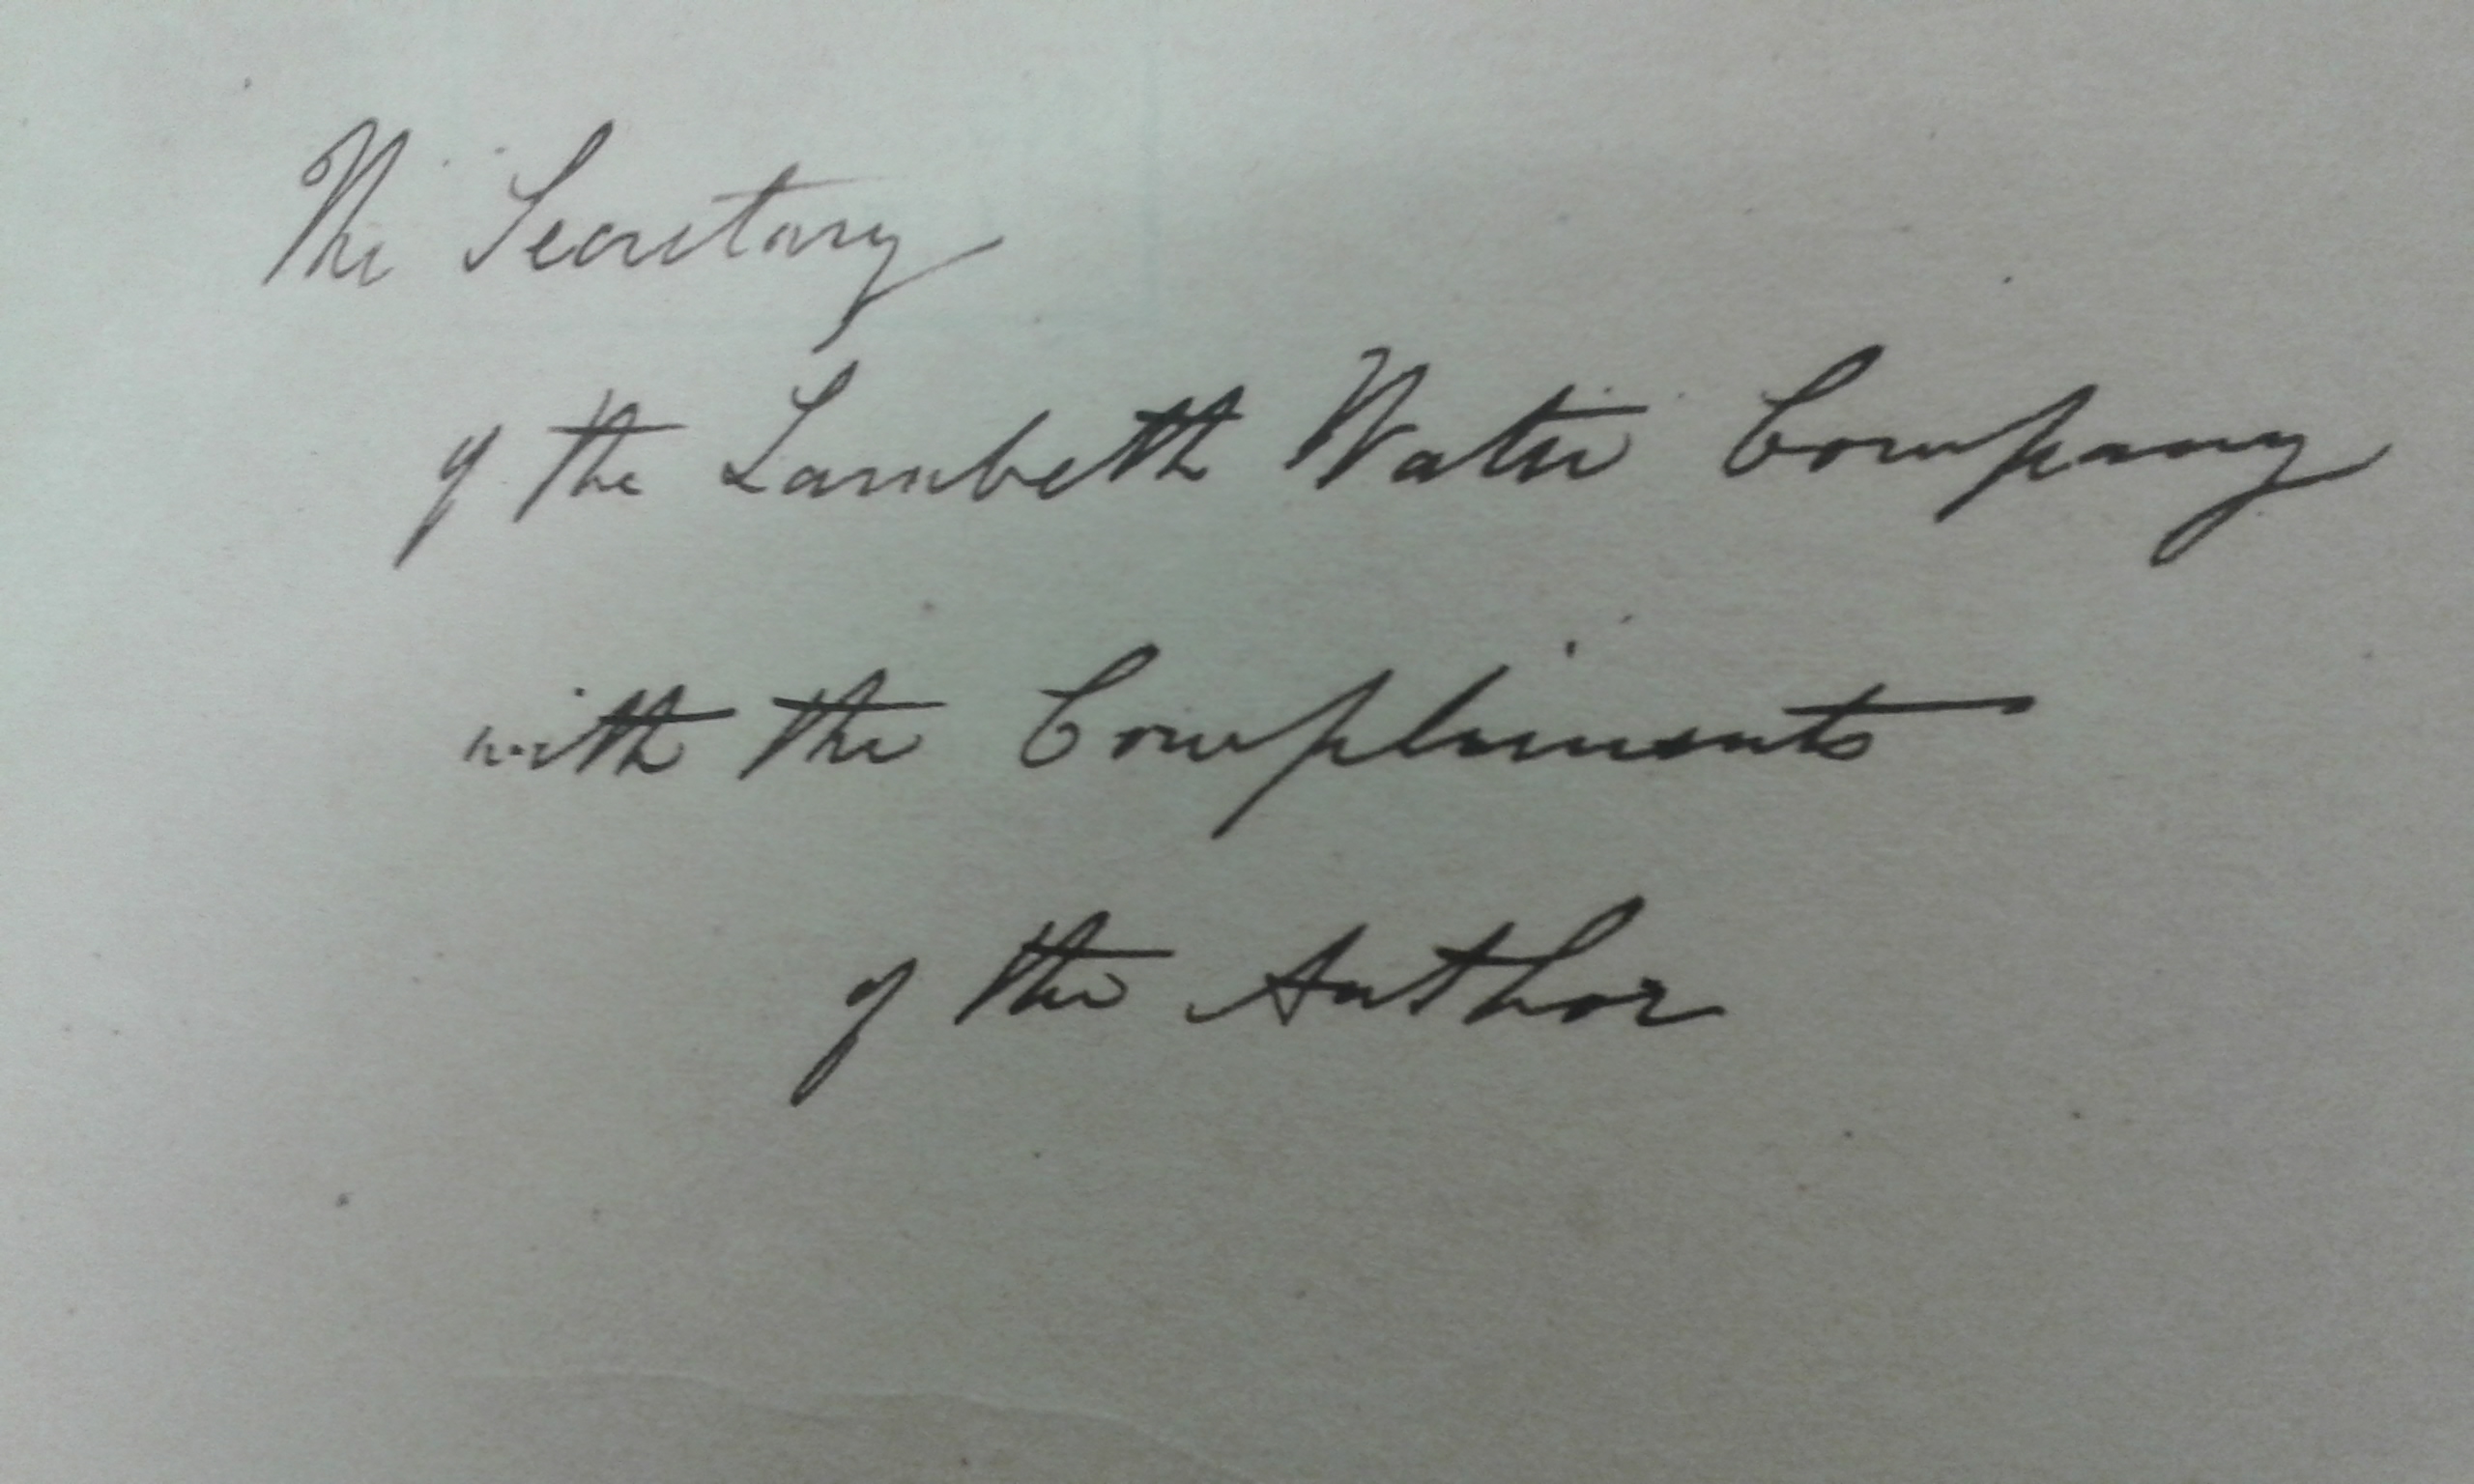 The Secretary
of the Lambeth Water Company
with the Compliments
of the Author